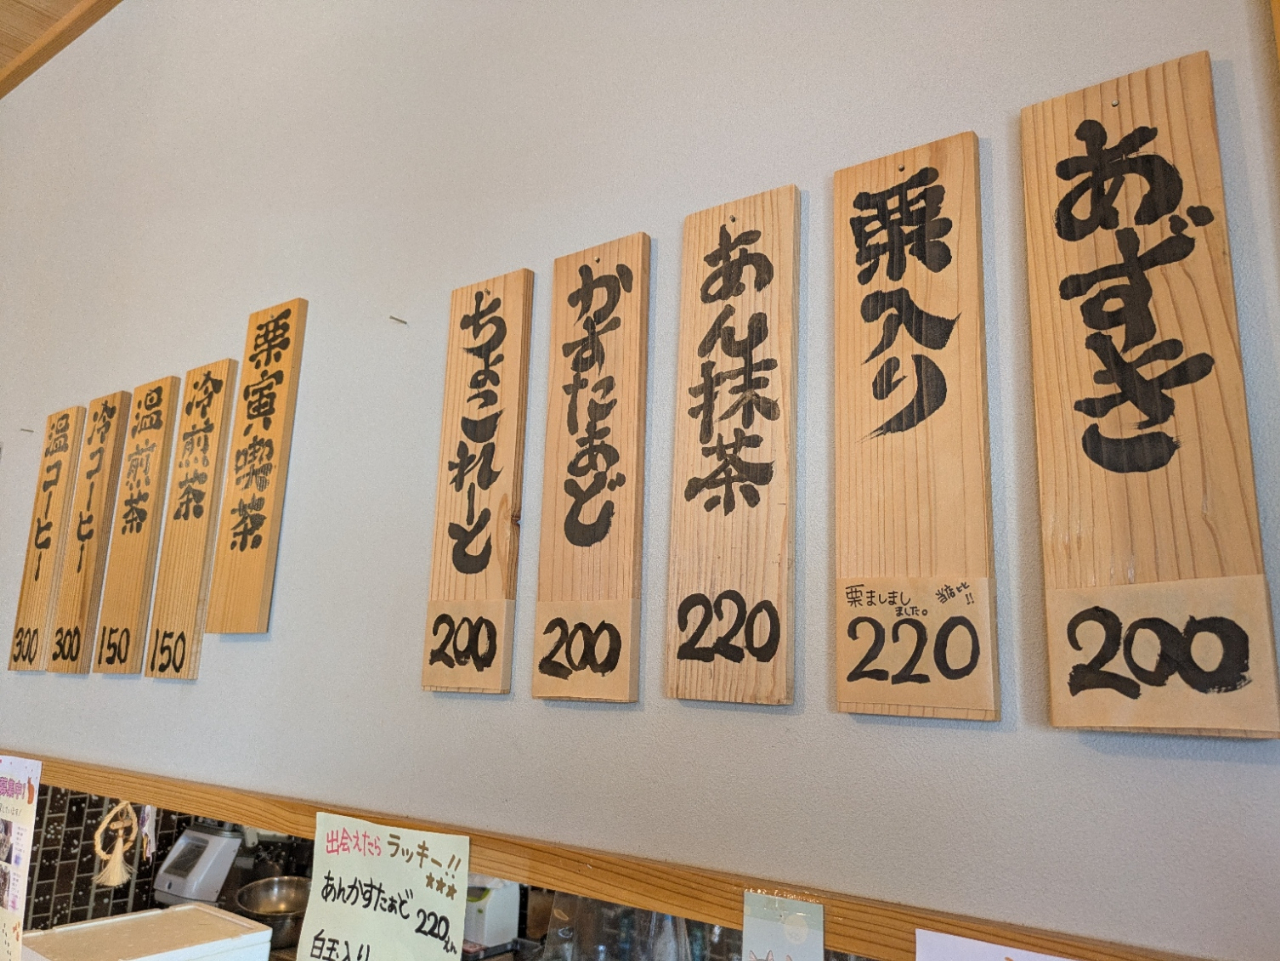 あずき
200
栗入り
栗ましまし
ました。
当店比!!
220
あん抹茶
220
かすたぁど
200
ちょこれーと
200
栗寅喫茶
冷煎茶
150
温煎茶
150
冷コーヒー
300
温コーヒー
300
出会えたら ラッキー!!
★★★
あんかすたぁど
220えん
白玉入り